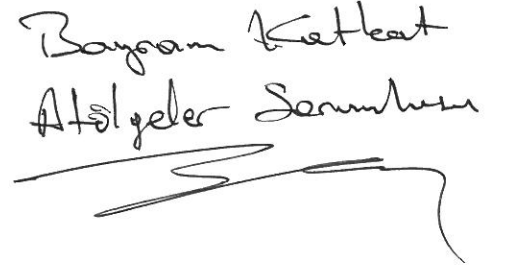 Bayram Katkat
Atölyeler Sorumlusu